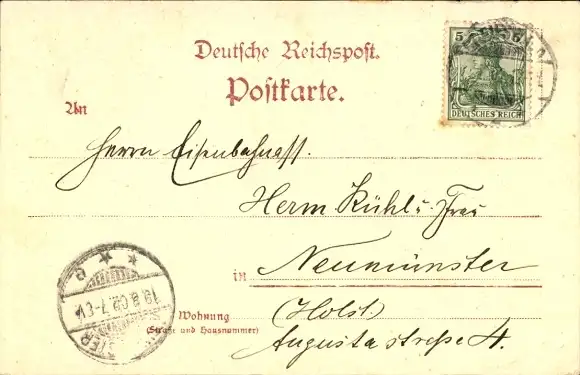 Deutsche Reichspost.
Postkarte.
5 5
DEUTSCHES REICH
An
Herrn Eisenbahnass.
Herm. Kühl u. Frau
in Neumünster
Wohnung
(Straße und Hausnummer)
(Holst.)
Augustastraße 4.
19.8.02.7-8V